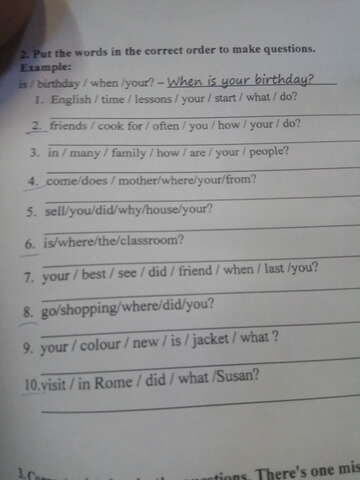 2. Put the words in the correct order to make questions.
Example:
is / birthday / when /your? – When is your birthday?
1. English / time / lessons / your / start / what / do?
2. friends / cook for / often / you / how / your / do?
3. in / many / family / how / are / your / people?
4. come/does / mother/where/your/from?
5. sell/you/did/why/house/your?
6. is/where/the/classroom?
7. your / best / see / did / friend / when / last /you?
8. go/shopping/where/did/you?
9. your / colour / new / is / jacket / what ?
10.visit / in Rome / did / what /Susan?
There's one